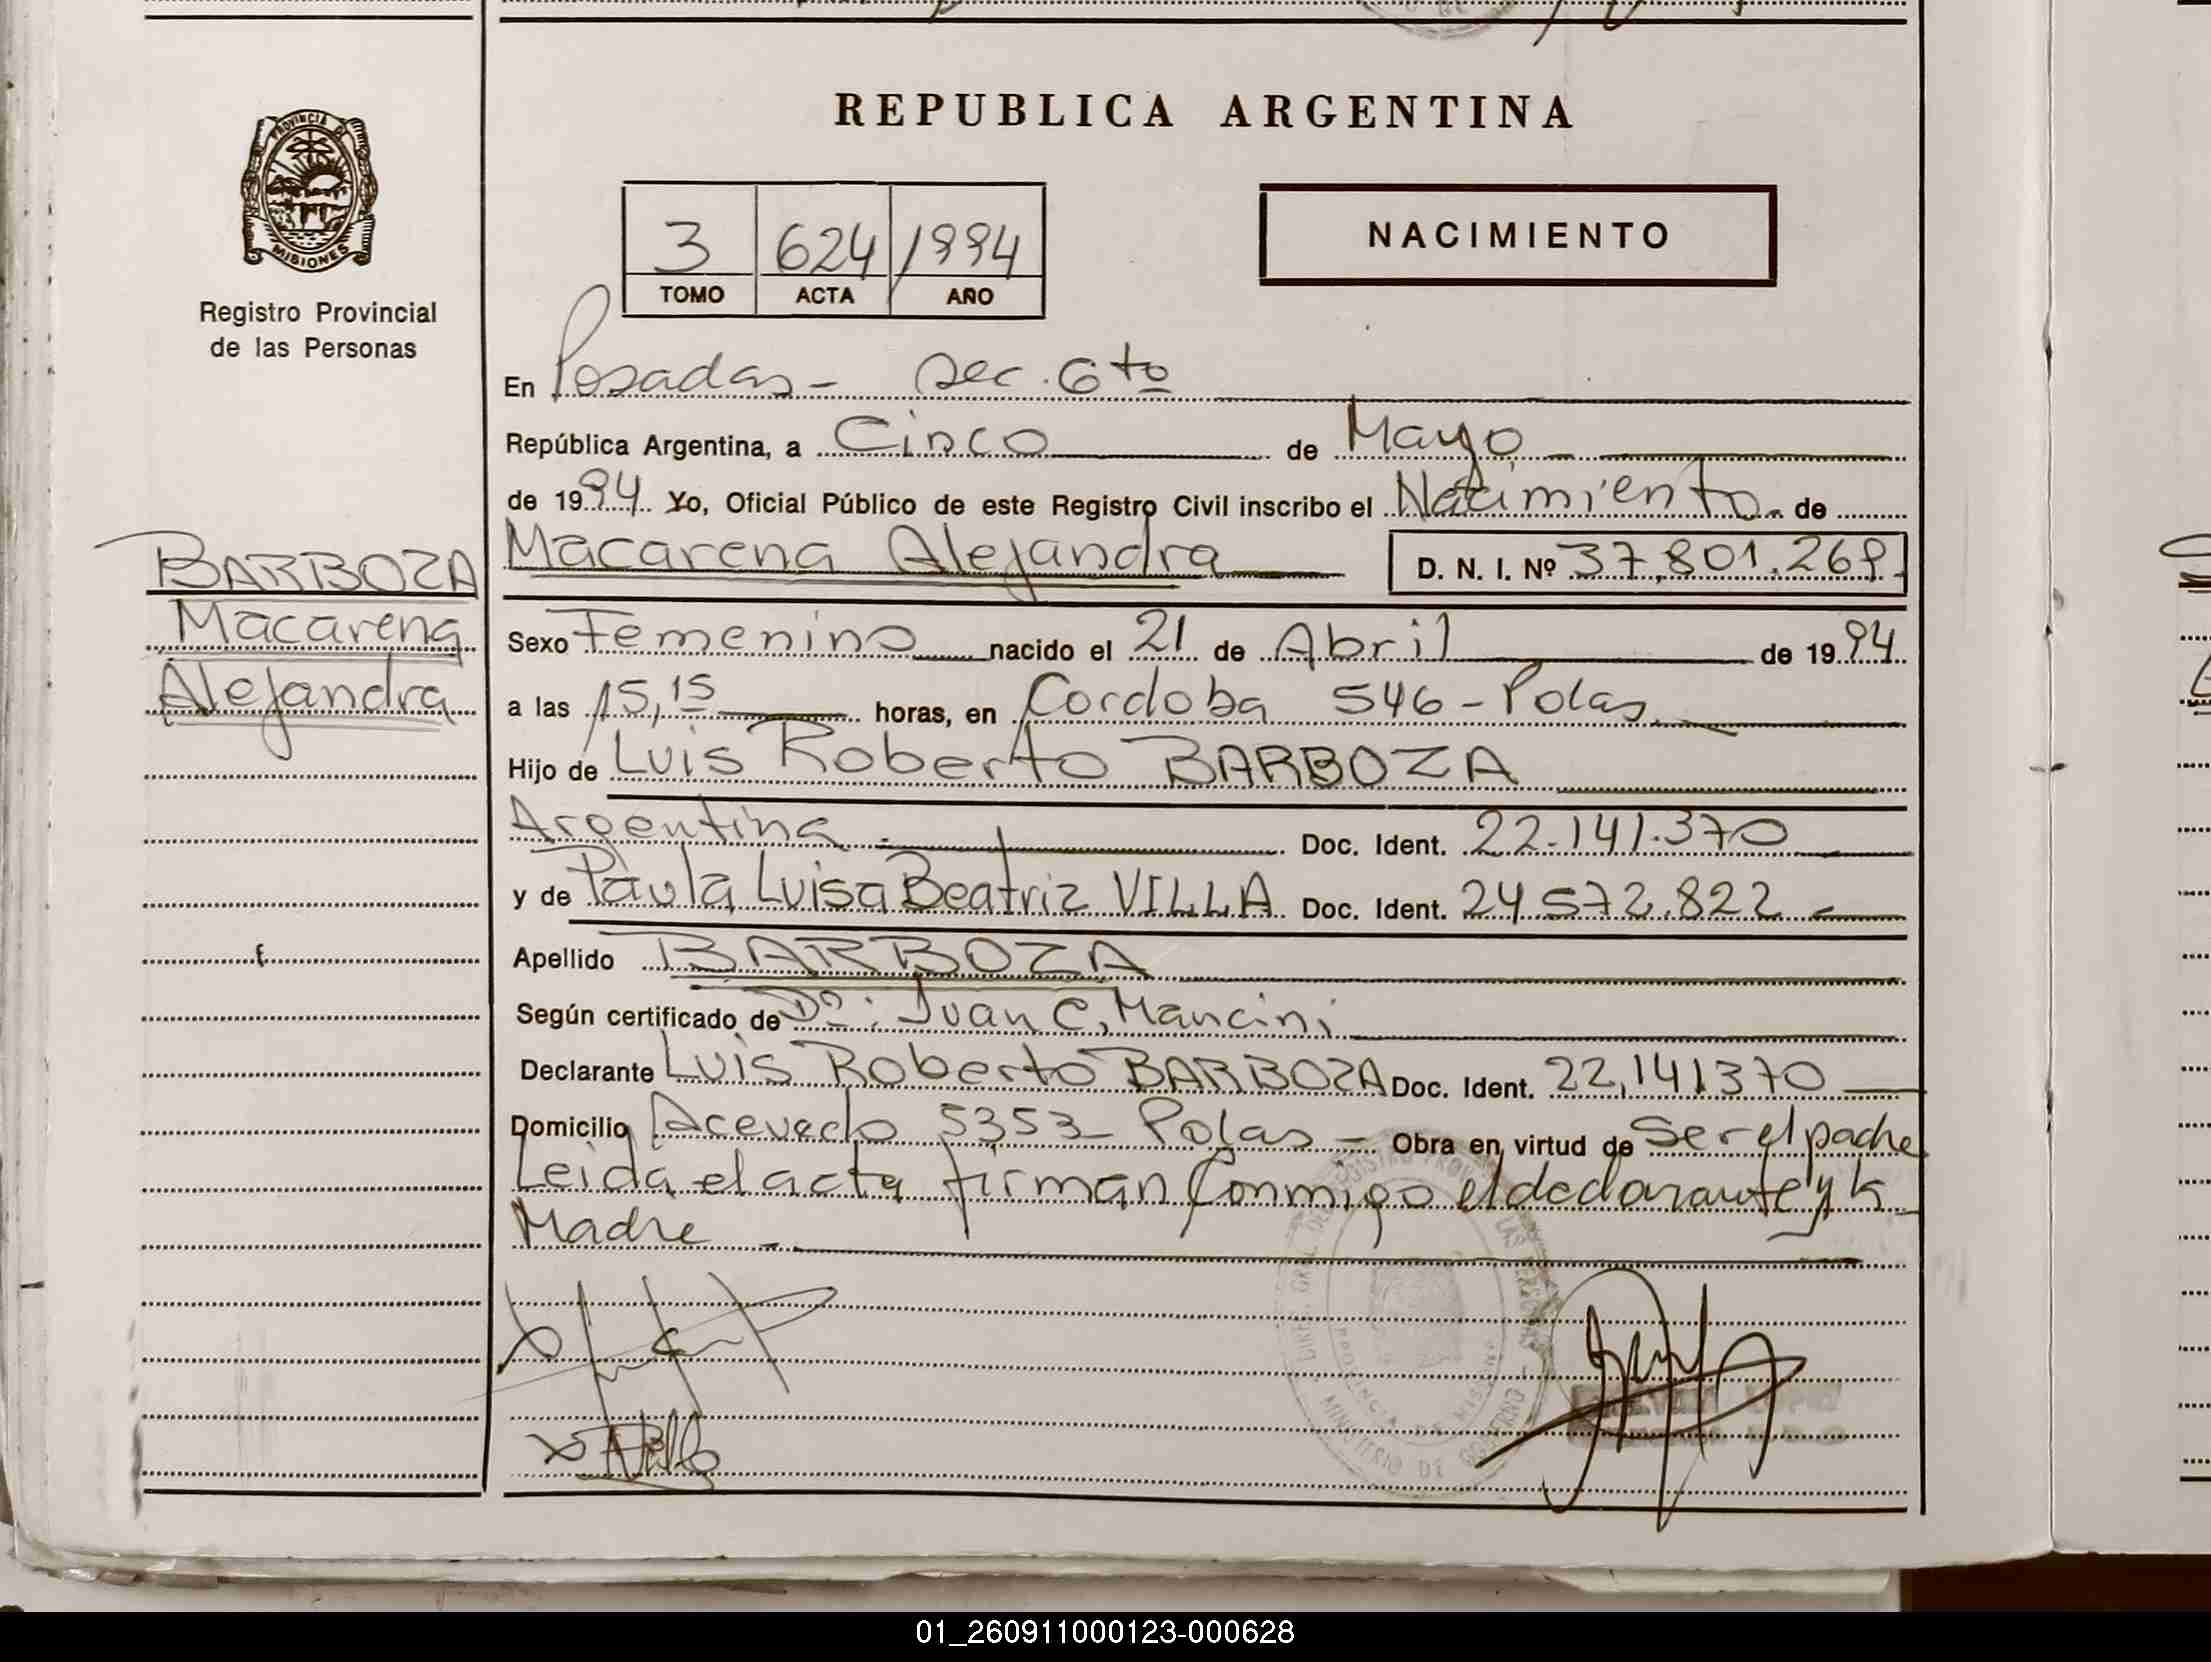 REPUBLICA ARGENTINA
PROVINCIA DE
MISIONES
Registro Provincial
de las Personas
3 624 1994
TOMO ACTA AÑO
NACIMIENTO
En Posadas - Sec. 6to
República Argentina, a Cinco de Mayo
de 1994. Yo, Oficial Público de este Registro Civil inscribo el Nacimiento. de
BARBOZA
Macarena
Alejandra
Macarena Alejandra D. N. I. Nº 37.801.269.
Sexo Femenino nacido el 21 de Abril de 1994.
a las 15,15 horas, en Cordoba 546 - Pdas.
Hijo de Luis Roberto BARBOZA
Argentina. Doc. Ident. 22.141.370
y de Paula Luisa Beatriz VILLA Doc. Ident. 24.572.822 -
Apellido BARBOZA
Según certificado de Dr: Juan C. Mancini
Declarante Luis Roberto BARBOZA Doc. Ident. 22,141370
Domicilio Acevedo 5353 - Pdas - Obra en virtud de Ser el padre
Leida el acta firman Conmigo el declarante y la
Madre -
PROVINCIA DE MISIONES
MINISTERIO DE GOBIERNO
01_260911000123-000628